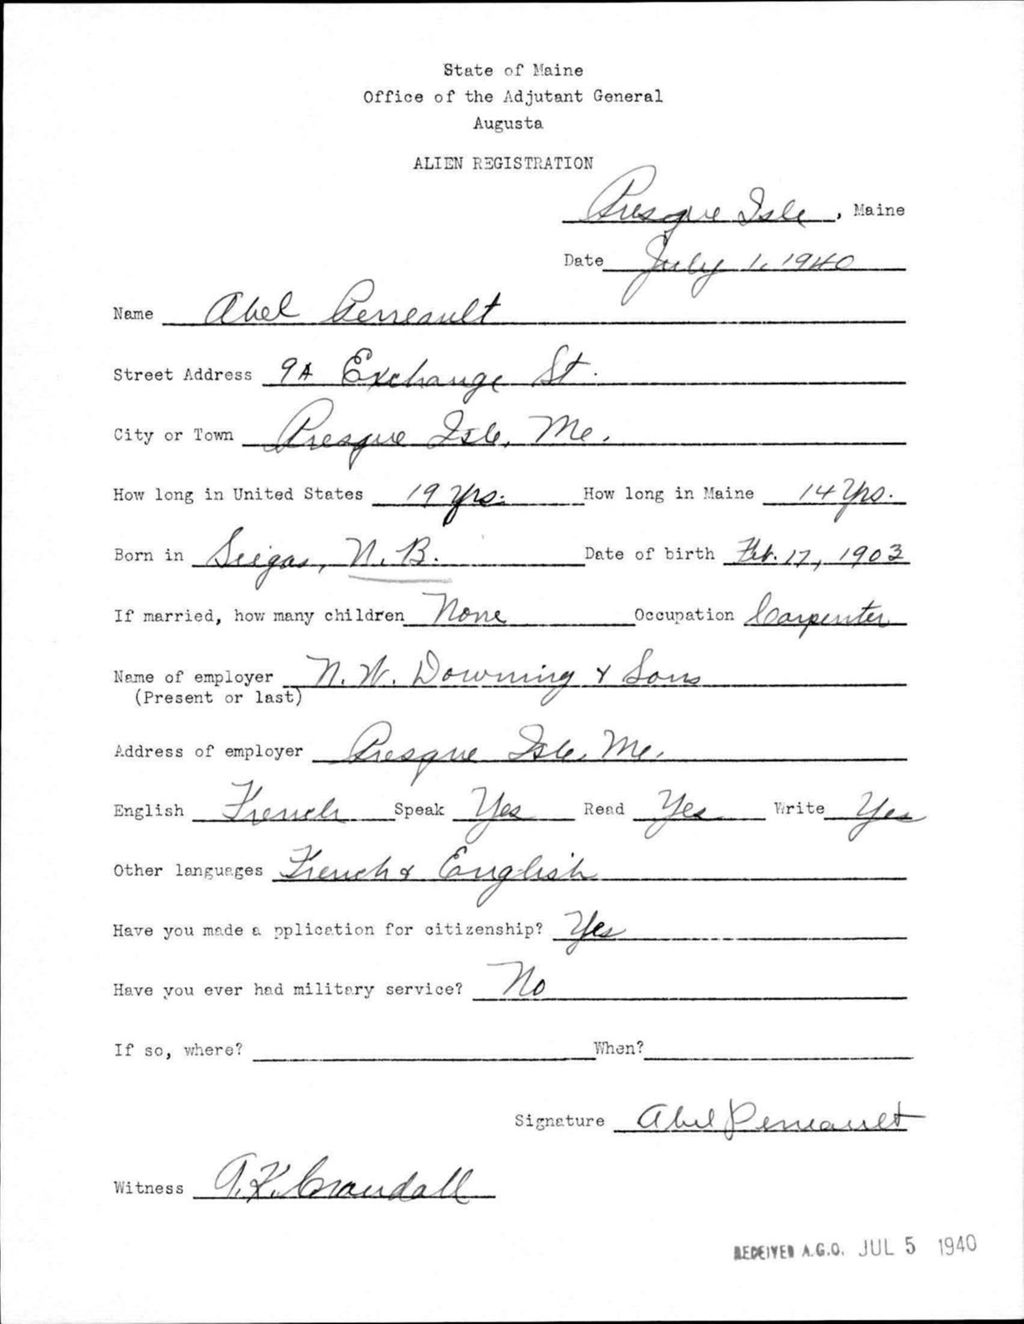 State of Maine
Office of the Adjutant General
Augusta
ALIEN REGISTRATION
Presque Isle, Maine
Date July 1, 1940
Name Abel Perreault
Street Address 9A Exchange St.
City or Town Presque Isle, Me.
How long in United States 19 Yrs. How long in Maine 14 Yrs.
Born in Siegas, N.B. Date of birth Feb. 17, 1903
If married, how many children None Occupation Carpenter
Name of employer N. W. Downing & Sons
(Present or last)
Address of employer Presque Isle, Me.
English French Speak Yes Read Yes Write Yes
Other languages French & English
Have you made a pplication for citizenship? Yes
Have you ever had military service? No
If so, where? When?
Signature Abel Perreault
Witness Crandall
RECEIVED A.G.O. JUL 5 1940